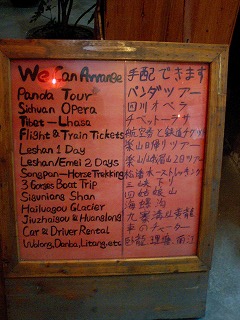 We Can Arrange 手配できます
Panda Tour パンダツアー
Sichuan Opera 四川オペラ
Tibet-Lhasa チベットラサ
Flight & Train Tickets 航空券と鉄道チケット
Leshan 1 Day 楽山日帰りツアー
Leshan/Emei 2 Days 楽山/峨眉山2日ツアー
Songpan-Horse Trekking 松潘ホーストレッキング
3 Gorges Boat Trip 三峡下り
Siguniang Shan 四姑娘山
Hailuogou Glacier 海螺沟
Jiuzhaigou & Huanglong 九寨溝&黄龍
Car & Driver Rental 車のチャーター
Wolong, Danba, Litang, etc 臥龍 理塘